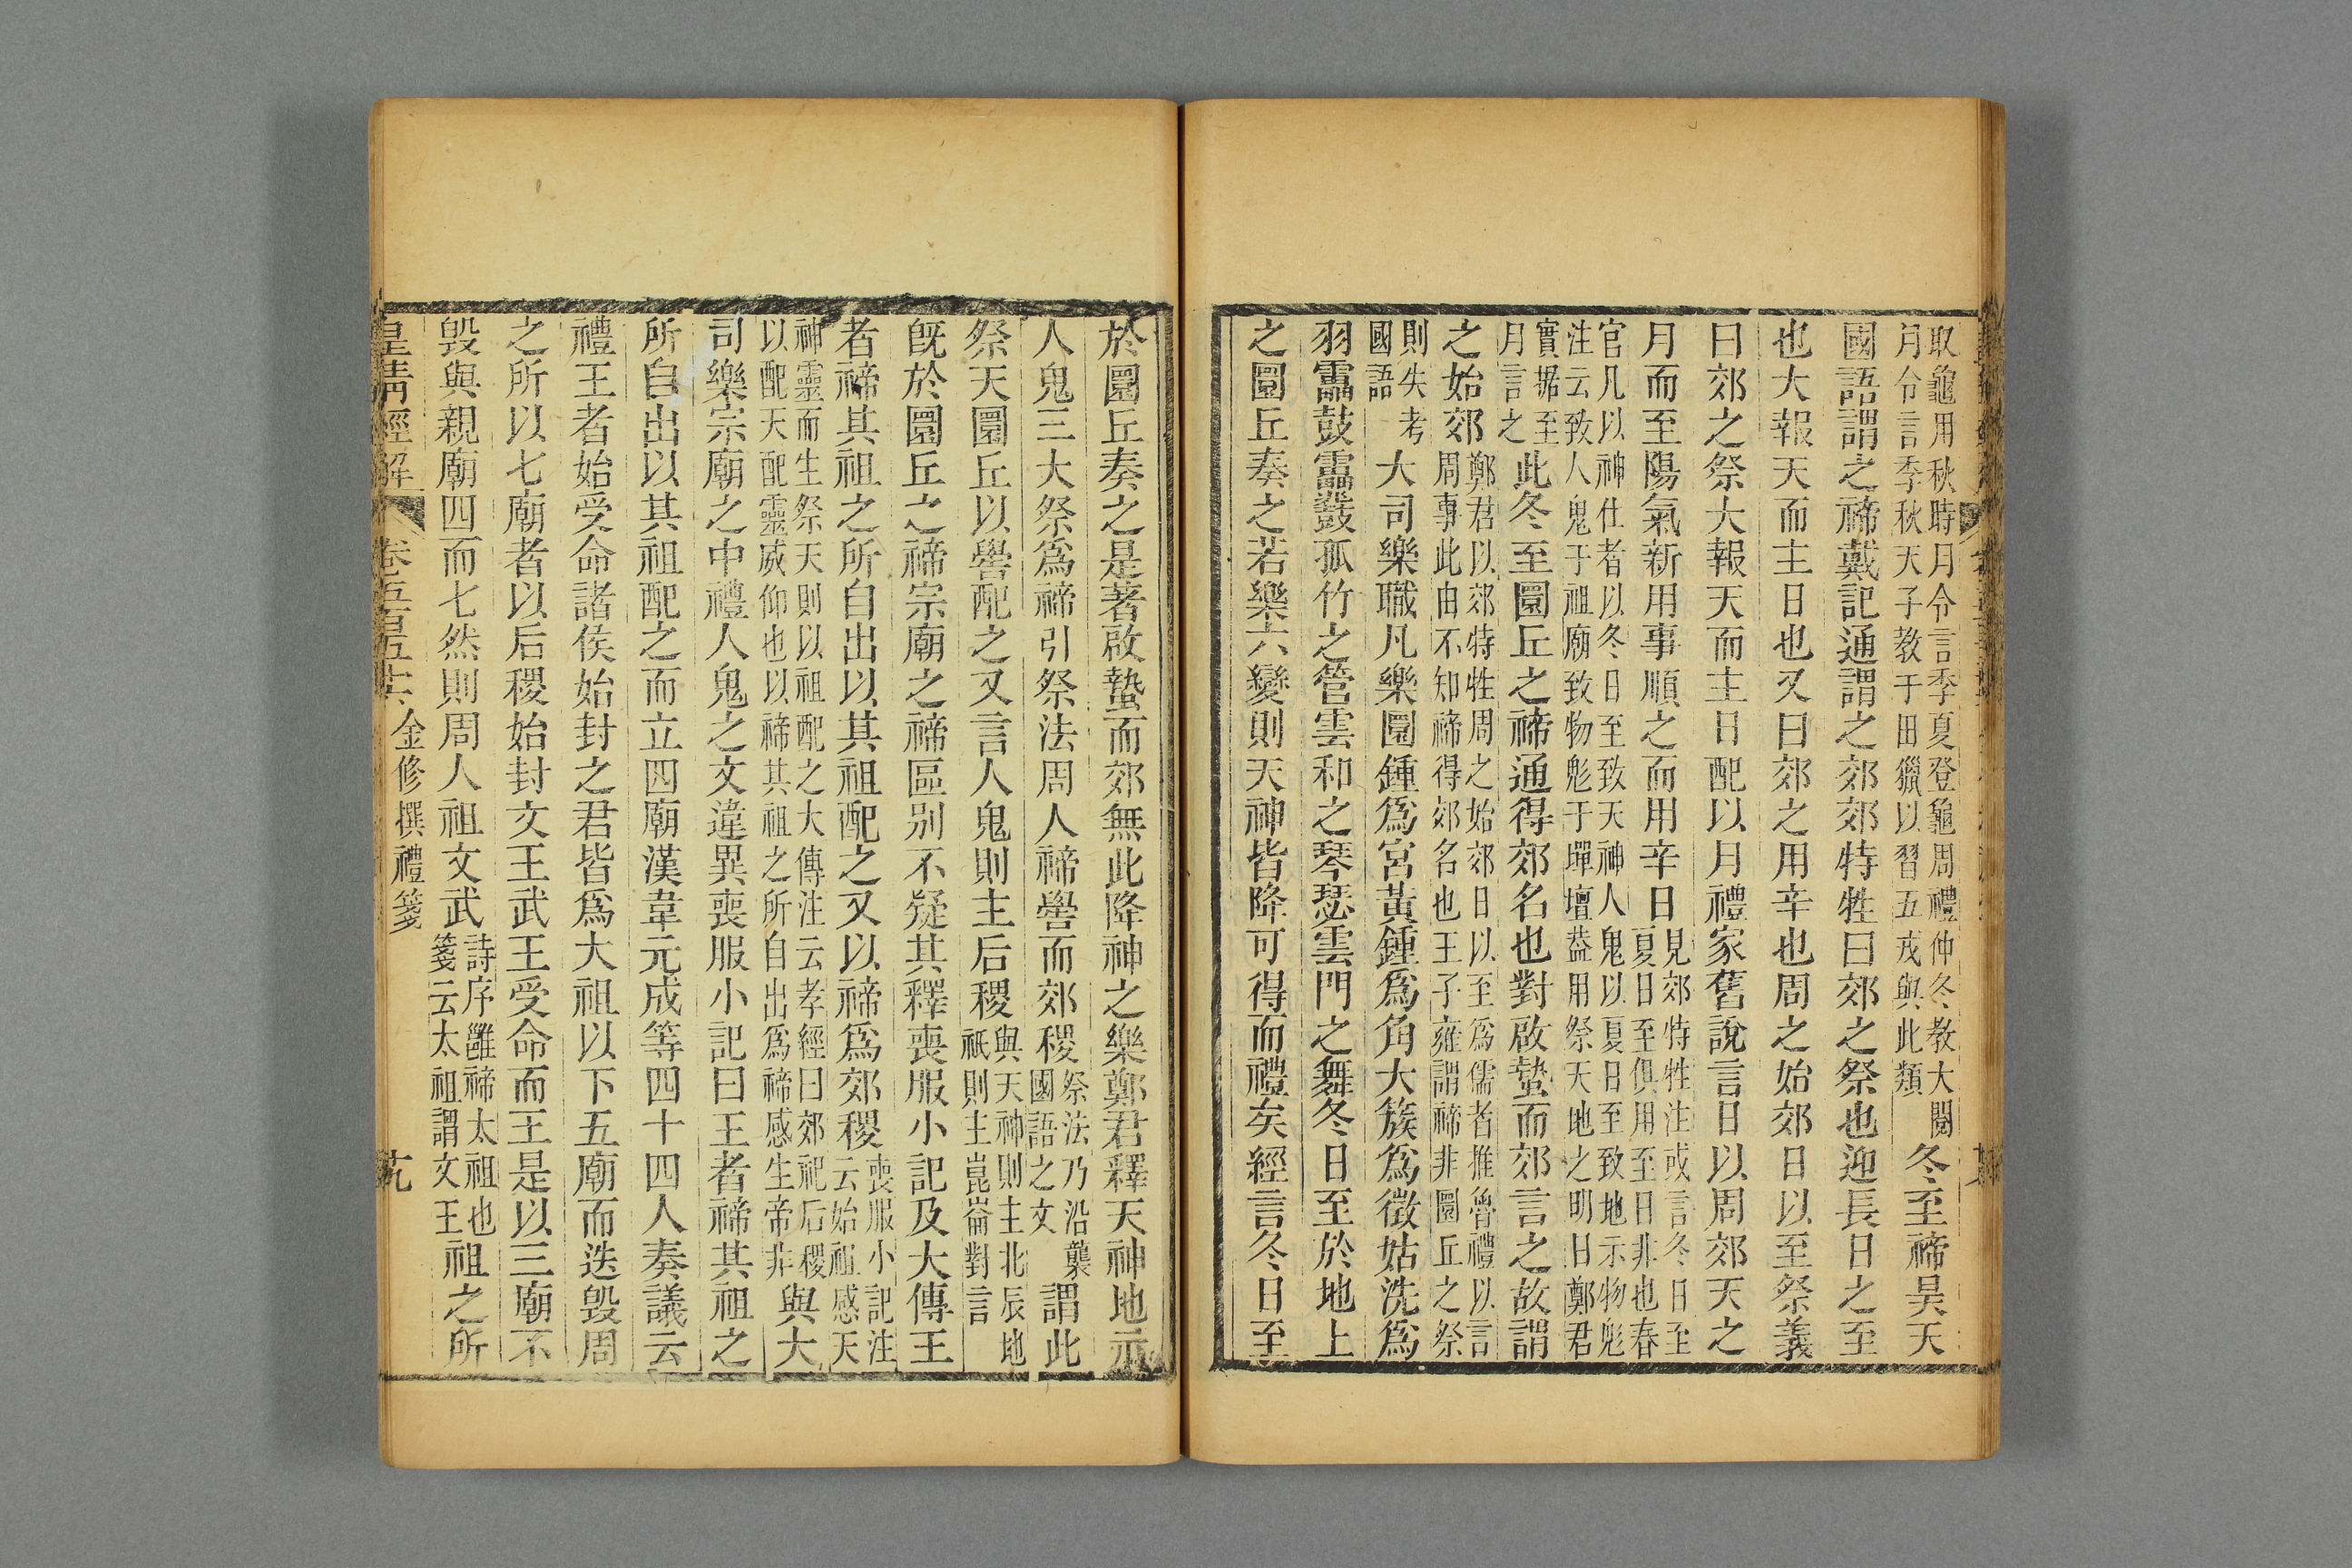 取龜用秋時月令言季夏登龜周禮仲冬教大閱
月令言季秋天子教于田獵以習五戎與此類
冬至禘昊天
國語謂之禘戴記通謂之郊郊特牲曰郊之祭也迎長日之至
也大報天而主日也又曰郊之用辛也周之始郊日以至祭義
曰郊之祭大報天而主日配以月禮家舊說言日以周郊天之
月而至陽氣新用事順之而用辛日
見郊特牲注或言冬日至
夏日至俱用至日非也春
官凡以神仕者以冬日至致天神人鬼以夏日至致地示物鬽
注云致人鬼于祖廟致物鬽于墠壇葢用祭天地之明日鄭君
實据至
月言之
此冬至圜丘之禘通得郊名也對啟蟄而郊言之故謂
之始郊
鄭君以郊特牲周之始郊日以至爲儒者推魯禮以言
周事此由不知禘得郊名也王子雍謂禘非圜丘之祭
則失考
國語
大司樂職凡樂圜鍾爲宮黃鍾爲角大簇爲徵姑洗爲
羽靁鼓靁鼗孤竹之管雲和之琴瑟雲門之舞冬日至於地上
之圜丘奏之若樂六變則天神皆降可得而禮矣經言冬日至
於圜丘奏之是著啟蟄而郊無此降神之樂鄭君釋天神地示
人鬼三大祭爲禘引祭法周人禘嚳而郊稷
祭法乃沿襲
國語之文
謂此
祭天圜丘以嚳配之又言人鬼則主后稷
與天神則主北辰地
祇則主崑崙對言
旣於圜丘之禘宗廟之禘區别不疑其釋喪服小記及大傳王
者禘其祖之所自出以其祖配之又以禘爲郊稷
喪服小記注
云始祖感天
神靈而生祭天則以祖配之大傳注云孝經曰郊祀后稷
以配天配靈威仰也以禘其祖之所自出爲禘感生帝非
與大
司樂宗廟之中禮人鬼之文違異喪服小記曰王者禘其祖之
所自出以其祖配之而立四廟漢韋元成等四十四人奏議云
禮王者始受命諸侯始封之君皆爲大祖以下五廟而迭毀周
之所以七廟者以后稷始封文王武王受命而王是以三廟不
毀與親廟四而七然則周人祖文武
詩序雝禘太祖也
箋云太祖謂文王
祖之所
皇清經解 卷五百五十六 金修撰禮箋 十九